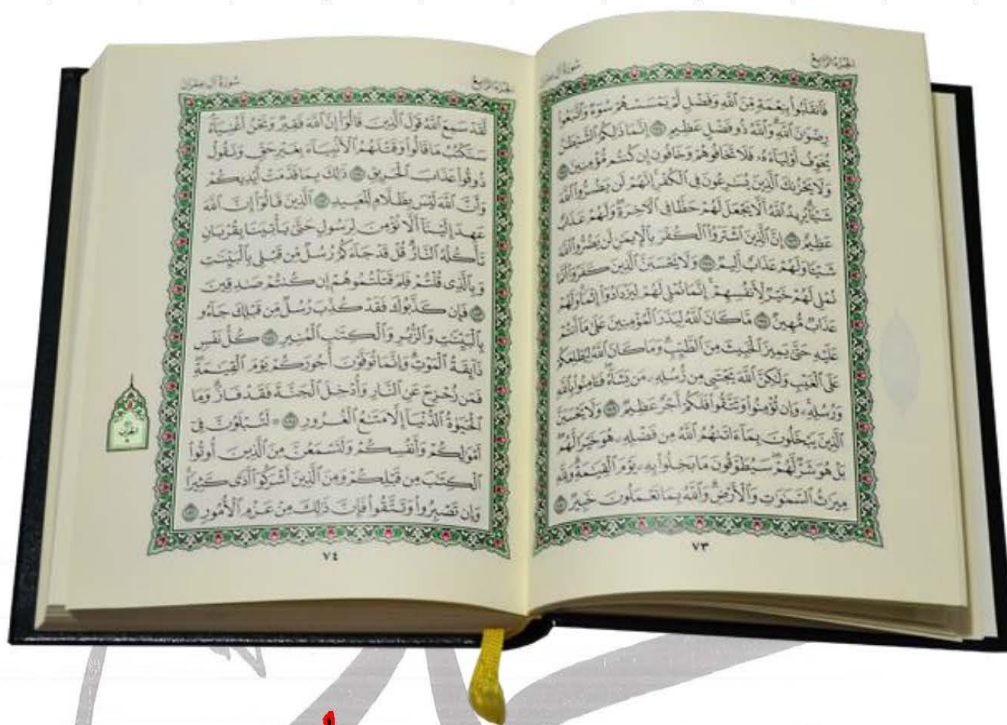 الجزء الرابع
سورة آل عمران
فَٱنقَلَبُوا۟ بِنِعْمَةٍ مِّنَ ٱللَّهِ وَفَضْلٍ لَّمْ يَمْسَسْهُمْ سُوٓءٌ وَٱتَّبَعُوا۟
رِضْوَٰنَ ٱللَّهِ وَٱللَّهُ ذُو فَضْلٍ عَظِيمٍ ١٧٤ إِنَّمَا ذَٰلِكُمُ ٱلشَّيْطَٰنُ
يُخَوِّفُ أَوْلِيَآءَهُۥ فَلَا تَخَافُوهُمْ وَخَافُونِ إِن كُنتُم مُّؤْمِنِينَ ١٧٥
وَلَا يَحْزُنكَ ٱلَّذِينَ يُسَٰرِعُونَ فِى ٱلْكُفْرِ إِنَّهُمْ لَن يَضُرُّوا۟ ٱللَّهَ
شَيْـًٔا يُرِيدُ ٱللَّهُ أَلَّا يَجْعَلَ لَهُمْ حَظًّا فِى ٱلْـَٔاخِرَةِ وَلَهُمْ عَذَابٌ
عَظِيمٌ ١٧٦ إِنَّ ٱلَّذِينَ ٱشْتَرَوُا۟ ٱلْكُفْرَ بِٱلْإِيمَٰنِ لَن يَضُرُّوا۟ ٱللَّهَ
شَيْـًٔا وَلَهُمْ عَذَابٌ أَلِيمٌ ١٧٧ وَلَا يَحْسَبَنَّ ٱلَّذِينَ كَفَرُوٓا۟ أَنَّمَا
نُمْلِى لَهُمْ خَيْرٌ لِّأَنفُسِهِمْ إِنَّمَا نُمْلِى لَهُمْ لِيَزْدَادُوٓا۟ إِثْمًا وَلَهُمْ
عَذَابٌ مُّهِينٌ ١٧٨ مَّا كَانَ ٱللَّهُ لِيَذَرَ ٱلْمُؤْمِنِينَ عَلَىٰ مَآ أَنتُمْ
عَلَيْهِ حَتَّىٰ يَمِيزَ ٱلْخَبِيثَ مِنَ ٱلطَّيِّبِ وَمَا كَانَ ٱللَّهُ لِيُطْلِعَكُمْ
عَلَى ٱلْغَيْبِ وَلَٰكِنَّ ٱللَّهَ يَجْتَبِى مِن رُّسُلِهِۦ مَن يَشَآءُ فَـَٔامِنُوا۟ بِٱللَّهِ
وَرُسُلِهِۦ وَإِن تُؤْمِنُوا۟ وَتَتَّقُوا۟ فَلَكُمْ أَجْرٌ عَظِيمٌ ١٧٩ وَلَا يَحْسَبَنَّ
ٱلَّذِينَ يَبْخَلُونَ بِمَآ ءَاتَىٰهُمُ ٱللَّهُ مِن فَضْلِهِۦ هُوَ خَيْرًا لَّهُم
بَلْ هُوَ شَرٌّ لَّهُمْ سَيُطَوَّقُونَ مَا بَخِلُوا۟ بِهِۦ يَوْمَ ٱلْقِيَٰمَةِ وَلِلَّهِ
مِيرَٰثُ ٱلسَّمَٰوَٰتِ وَٱلْأَرْضِ وَٱللَّهُ بِمَا تَعْمَلُونَ خَبِيرٌ ١٨٠
٧٣
الجزء الرابع
سورة آل عمران
لَّقَدْ سَمِعَ ٱللَّهُ قَوْلَ ٱلَّذِينَ قَالُوٓا۟ إِنَّ ٱللَّهَ فَقِيرٌ وَنَحْنُ أَغْنِيَآءُ
سَنَكْتُبُ مَا قَالُوا۟ وَقَتْلَهُمُ ٱلْأَنۢبِيَآءَ بِغَيْرِ حَقٍّ وَنَقُولُ
ذُوقُوا۟ عَذَابَ ٱلْحَرِيقِ ١٨١ ذَٰلِكَ بِمَا قَدَّمَتْ أَيْدِيكُمْ
وَأَنَّ ٱللَّهَ لَيْسَ بِظَلَّامٍ لِّلْعَبِيدِ ١٨٢ ٱلَّذِينَ قَالُوٓا۟ إِنَّ ٱللَّهَ
عَهِدَ إِلَيْنَآ أَلَّا نُؤْمِنَ لِرَسُولٍ حَتَّىٰ يَأْتِيَنَا بِقُرْبَانٍ
تَأْكُلُهُ ٱلنَّارُ قُلْ قَدْ جَآءَكُمْ رُسُلٌ مِّن قَبْلِى بِٱلْبَيِّنَٰتِ
وَبِٱلَّذِى قُلْتُمْ فَلِمَ قَتَلْتُمُوهُمْ إِن كُنتُمْ صَٰدِقِينَ
١٨٣ فَإِن كَذَّبُوكَ فَقَدْ كُذِّبَ رُسُلٌ مِّن قَبْلِكَ جَآءُو
بِٱلْبَيِّنَٰتِ وَٱلزُّبُرِ وَٱلْكِتَٰبِ ٱلْمُنِيرِ ١٨٤ كُلُّ نَفْسٍ
ذَآئِقَةُ ٱلْمَوْتِ وَإِنَّمَا تُوَفَّوْنَ أُجُورَكُمْ يَوْمَ ٱلْقِيَٰمَةِ
فَمَن زُحْزِحَ عَنِ ٱلنَّارِ وَأُدْخِلَ ٱلْجَنَّةَ فَقَدْ فَازَ وَمَا
ٱلْحَيَوٰةُ ٱلدُّنْيَآ إِلَّا مَتَٰعُ ٱلْغُرُورِ ١٨٥ ۞ لَتُبْلَوُنَّ فِىٓ
أَمْوَٰلِكُمْ وَأَنفُسِكُمْ وَلَتَسْمَعُنَّ مِنَ ٱلَّذِينَ أُوتُوا۟
ٱلْكِتَٰبَ مِن قَبْلِكُمْ وَمِنَ ٱلَّذِينَ أَشْرَكُوٓا۟ أَذًى كَثِيرًا
وَإِن تَصْبِرُوا۟ وَتَتَّقُوا۟ فَإِنَّ ذَٰلِكَ مِنْ عَزْمِ ٱلْأُمُورِ ١٨٦
٧٤